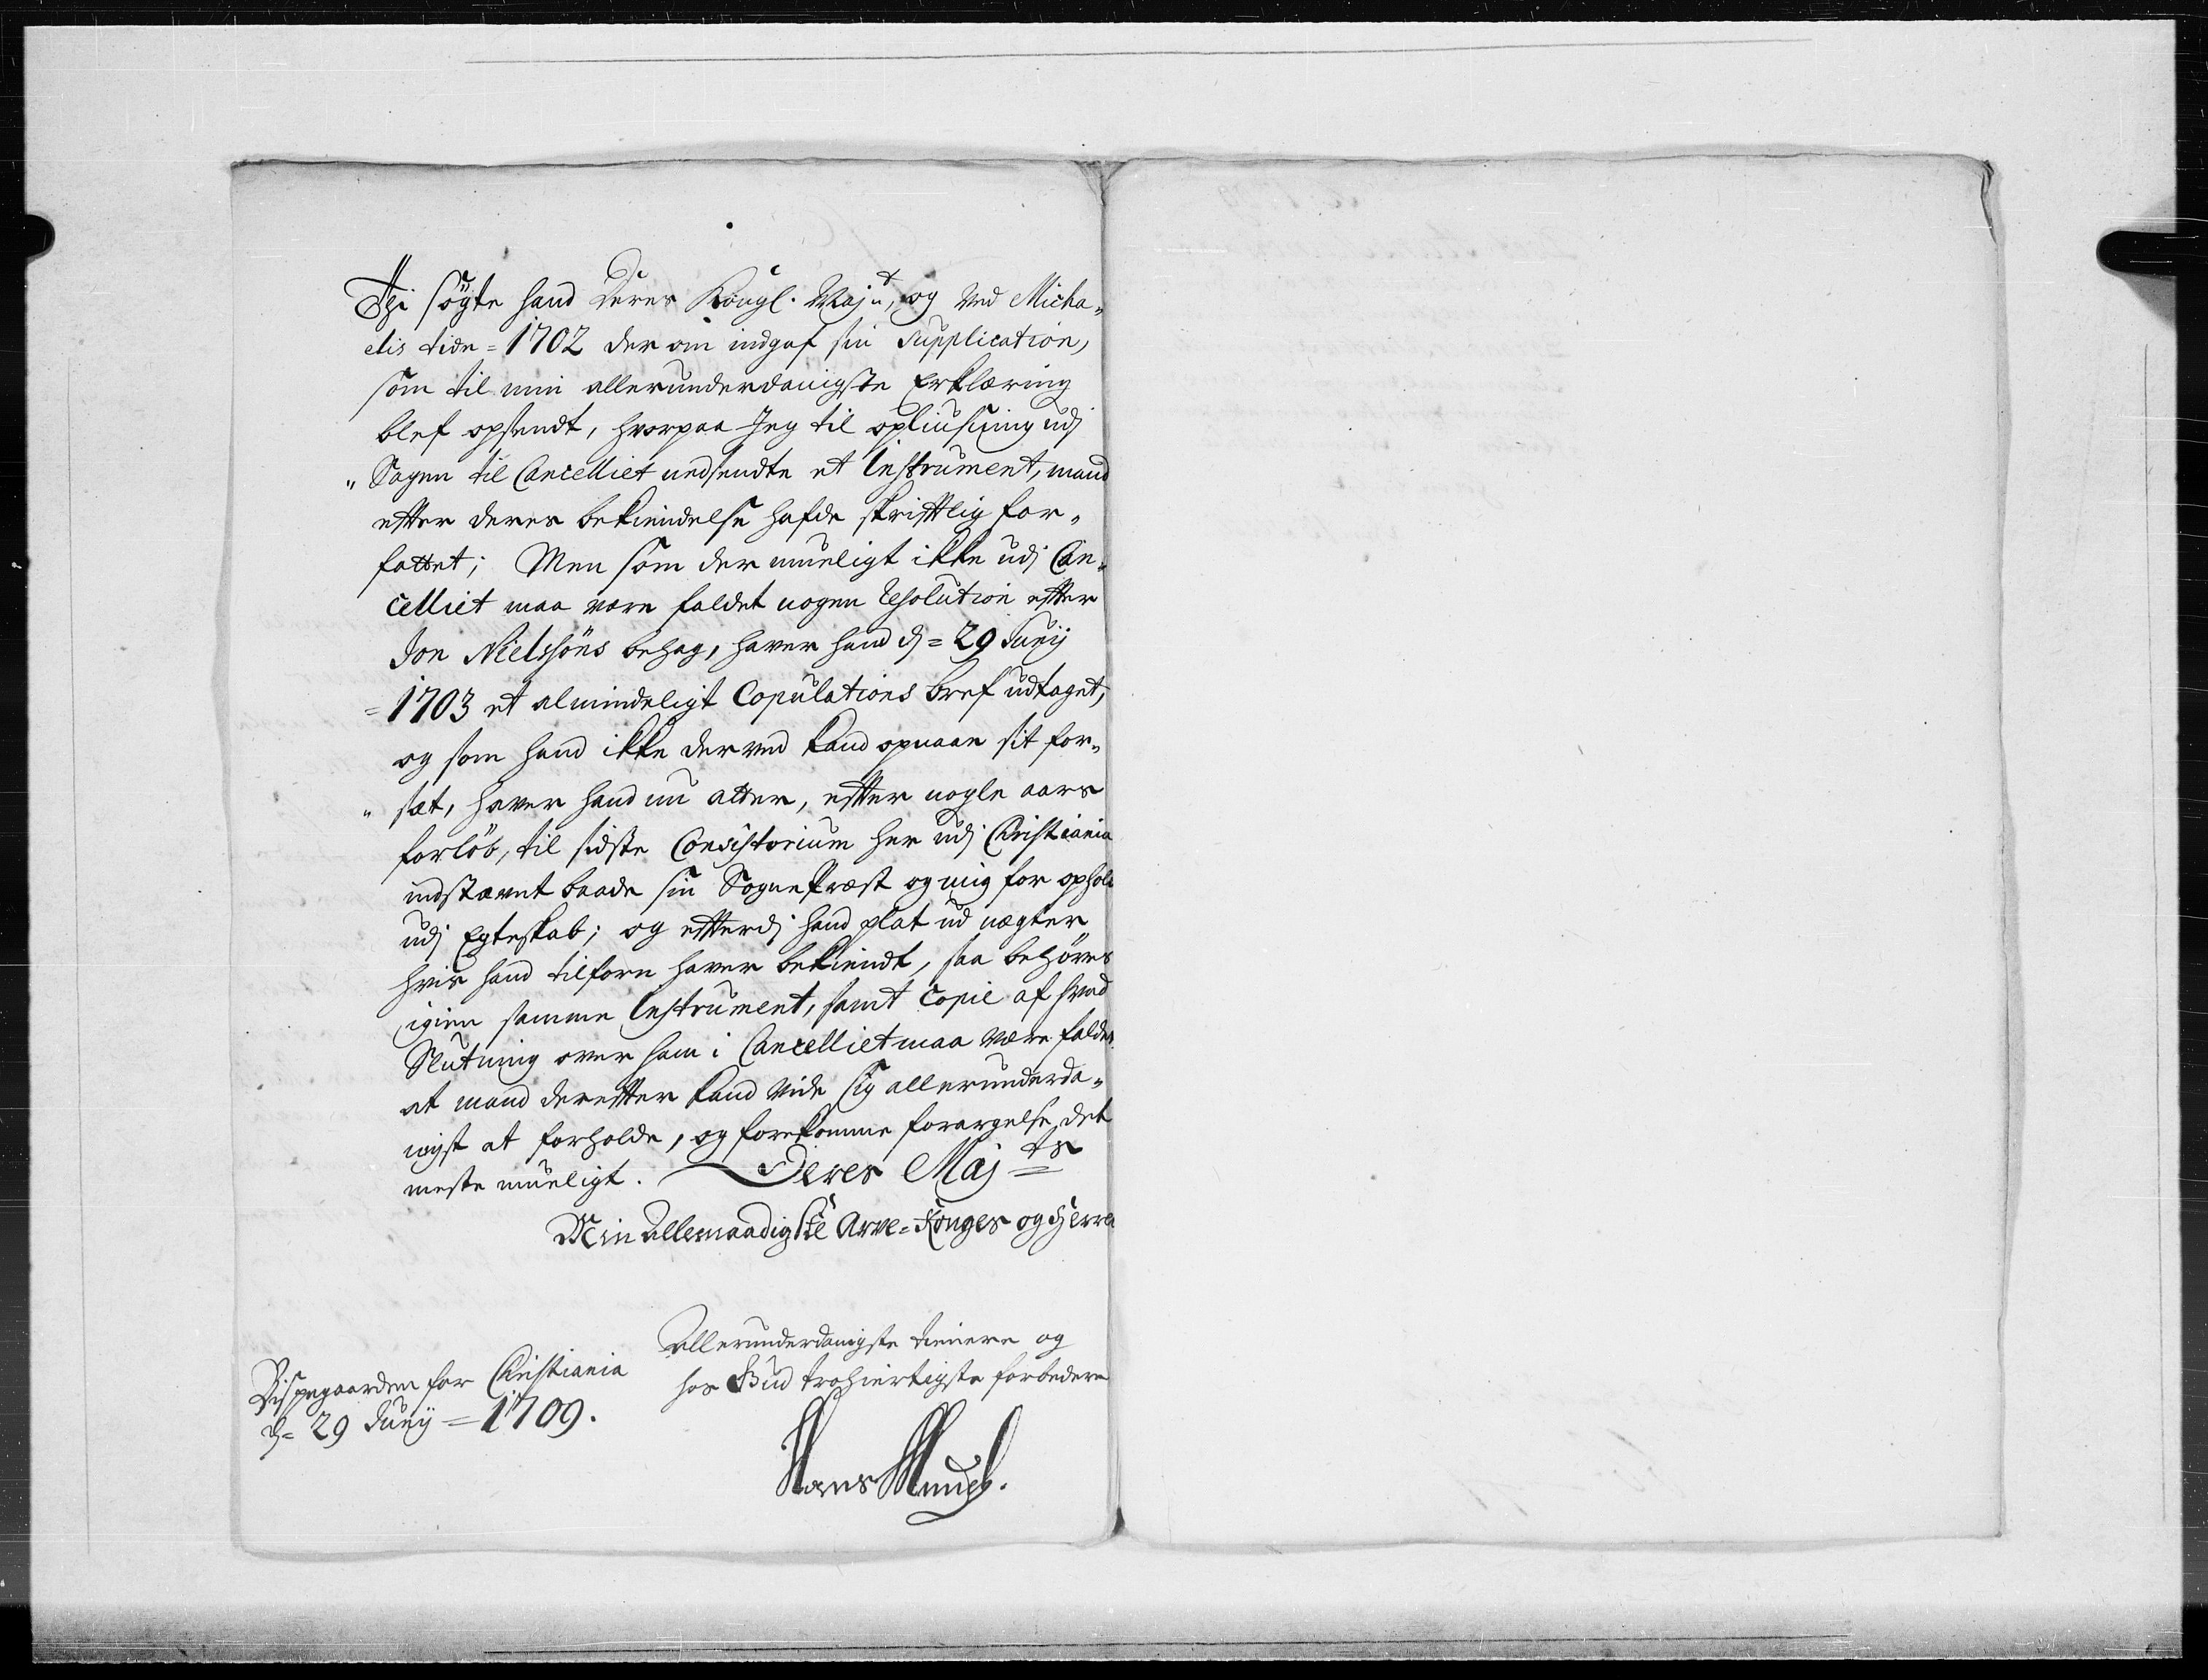 Thi søgte hand Deres Kongl. Majt, og ved Micha-
elis tide = 1702 der om indgaf sin Supplication,
som til min allerunderdanigste Erklæring
blef opsendt, hvorpaa Jeg til opliusning udj
Sagen til Cancelliet nedsendte et Instrument, mand
efter deres bekiendelse hafde skriftlig for-
fattet; Men som der mueligt ikke udj Can-
celliet maa være faldet nogen Resolution efter
Jon Nielssøns behag, haver hand d = 29 Junij
= 1703 et almindeligt Copulations bref udtaget,
og som hand ikke derved kand opnaae sit for-
sæt, haver hand nu atter, efter nogle aars
forløb, til sidste Consistorium her udj Christiania
indstævnt baade sin SognePræst og mig for ophold
udj Egteskab; og efterdj hand plat ud nægter
hvis hand tilforn haver bekiendt, saa behøves
igien samme Instrument, samt Copie af hvad
Slutning over ham i Cancelliet maa være falden
at mand derefter kand vide sig allerunderda-
nigst at forholde, og forekomme forargelse det
meste mueligt. Deres Majts
Min Allernaadigste Arve-Konges og Herres
Allerunderdanigste tienere og
hos Gud trohiertigste forbedere
Bispegaarden for Christiania
d = 29 Junij = 1709.
Hans Munch.